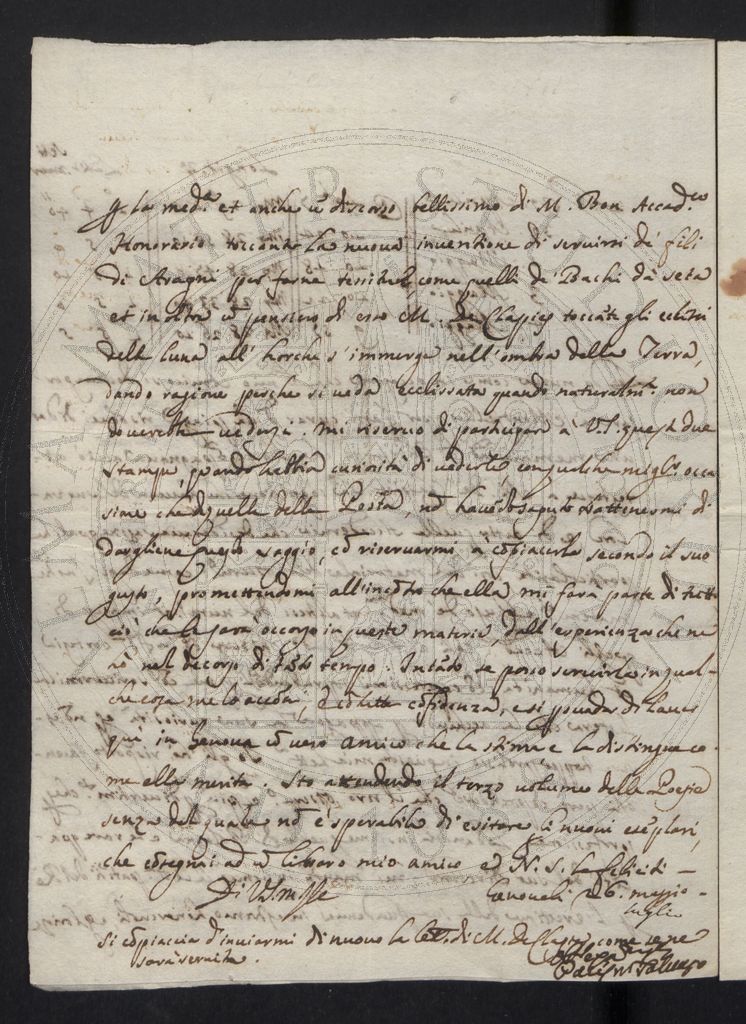 la med.ª et anche ũ discorso bellissimo di M. Bon Accad.co
Honorario toccante la nuova inventione di servirsi de' fili
di Aragni per farne tersitele come quelli de' Bachi da seta
et in oltre ũ pensiero di esso M. de Clapies toccãte gli eclissi
della luna all' horche s'immerge nell'ombra della Terra,
dando ragione perche si veda ecclissata quando naturalm.te non
doverebbe vedersi. Mi riservo di participare à V.S. queste due
stampe, quando habbia curiosità di vederle, con qualche migl.r occa
sione che di quella della Posta, nõ havẽdo saputo trattenermi di
dargliene questo saggio, cõ riservarmi à cõpiacerla secondo il suo
gusto, promettendomi all'incõtro che ella mi farà parte di tutto
ciò che le sarà occorso in queste materie, dall'esperienza che ne
hà nel decorso di tãto tempo. Intãto se posso servirla in qual-
che cosa me lo accẽni, cõ tutta cõfidenza, e si persuada di haver
quì in Genova ũ vero amico che la stima e la distingue co-
me ella merita. Sto attendendo il terzo volume delle Poesie
senza del quale nõ è sperabile di esitare li nuovi esẽplari,
che cõsegnai ad ũ libraro mio amico e N. S. la feliciti -
Di V.S. m. Ill.e
Genova li 26. maggio -
luglio
Si cõpiaccia d'inviarmi di nuovo la let.a di M. de Clapies, come se ne
sarà servita.
Salvago